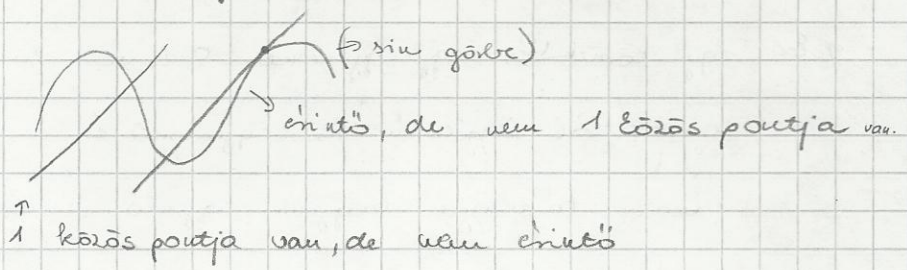 (→ sin görbe)
érintő, de nem 1 közös pontja van.
↑
1 közös pontja van, de nem érintő